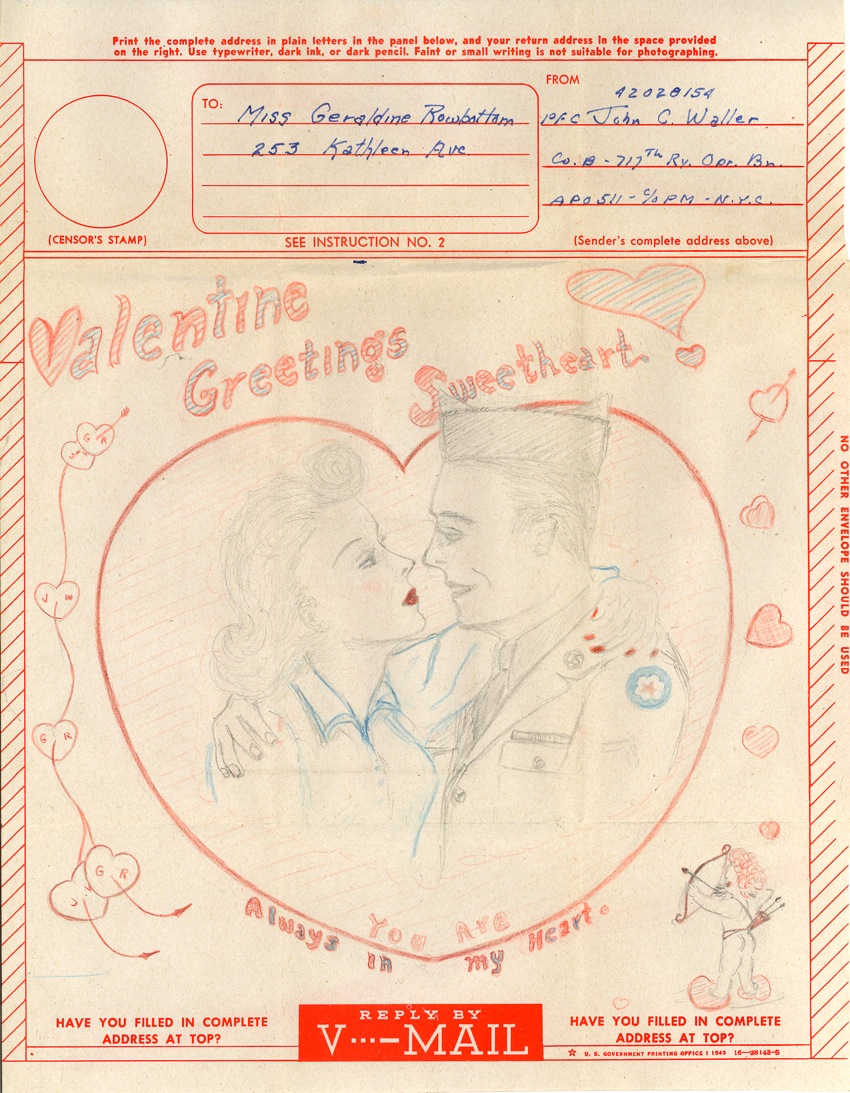 Print the complete address in plain letters in the panel below, and your return address in the space provided
on the right. Use typewriter, dark ink, or dark pencil. Faint or small writing is not suitable for photographing.
FROM
42028154
TO: Miss Geraldine Rowbottom
PFC John C. Waller
253 Kathleen Ave.
Co. B - 717Th Ry. Opr. Bn.
APO 511 - c/o PM - N.Y.C.
(CENSOR'S STAMP)
SEE INSTRUCTION NO. 2
(Sender's complete address above)
Valentine
Greetings
Sweetheart.
G R
J W
J W
G R
G R
J W
You Are
Always in my Heart.
NO OTHER ENVELOPE SHOULD BE USED
HAVE YOU FILLED IN COMPLETE
ADDRESS AT TOP?
REPLY BY
V···—MAIL
HAVE YOU FILLED IN COMPLETE
ADDRESS AT TOP?
☆ U. S. GOVERNMENT PRINTING OFFICE : 1943 16—28143-5